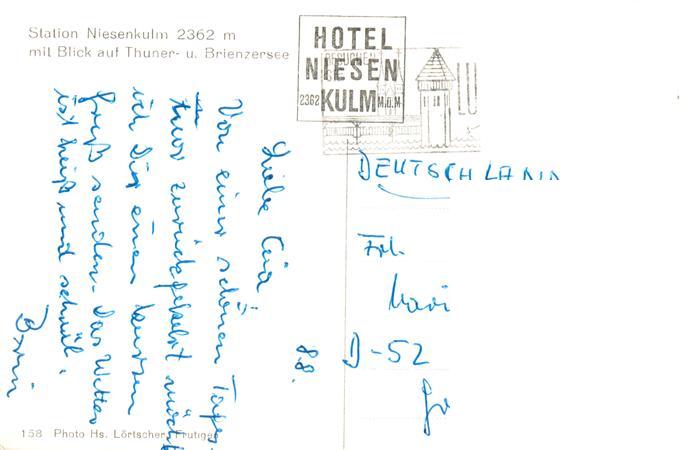 Station Niesenkulm 2362 m
mit Blick auf Thuner- u. Brienzersee
HOTEL
NIESEN
2362 KULM M.ü.M
BESUCHEN
LU
DEUTSCHLAND
Frl.
D-52
8.8.
Liebe
Von einer schönen Tages
tour zurückgekehrt möcht
ich Dir einen kurzen
Gruß senden. Das Wetter
ist heiß und schwül.
158 Photo Hs. Lörtscher, Frutigen